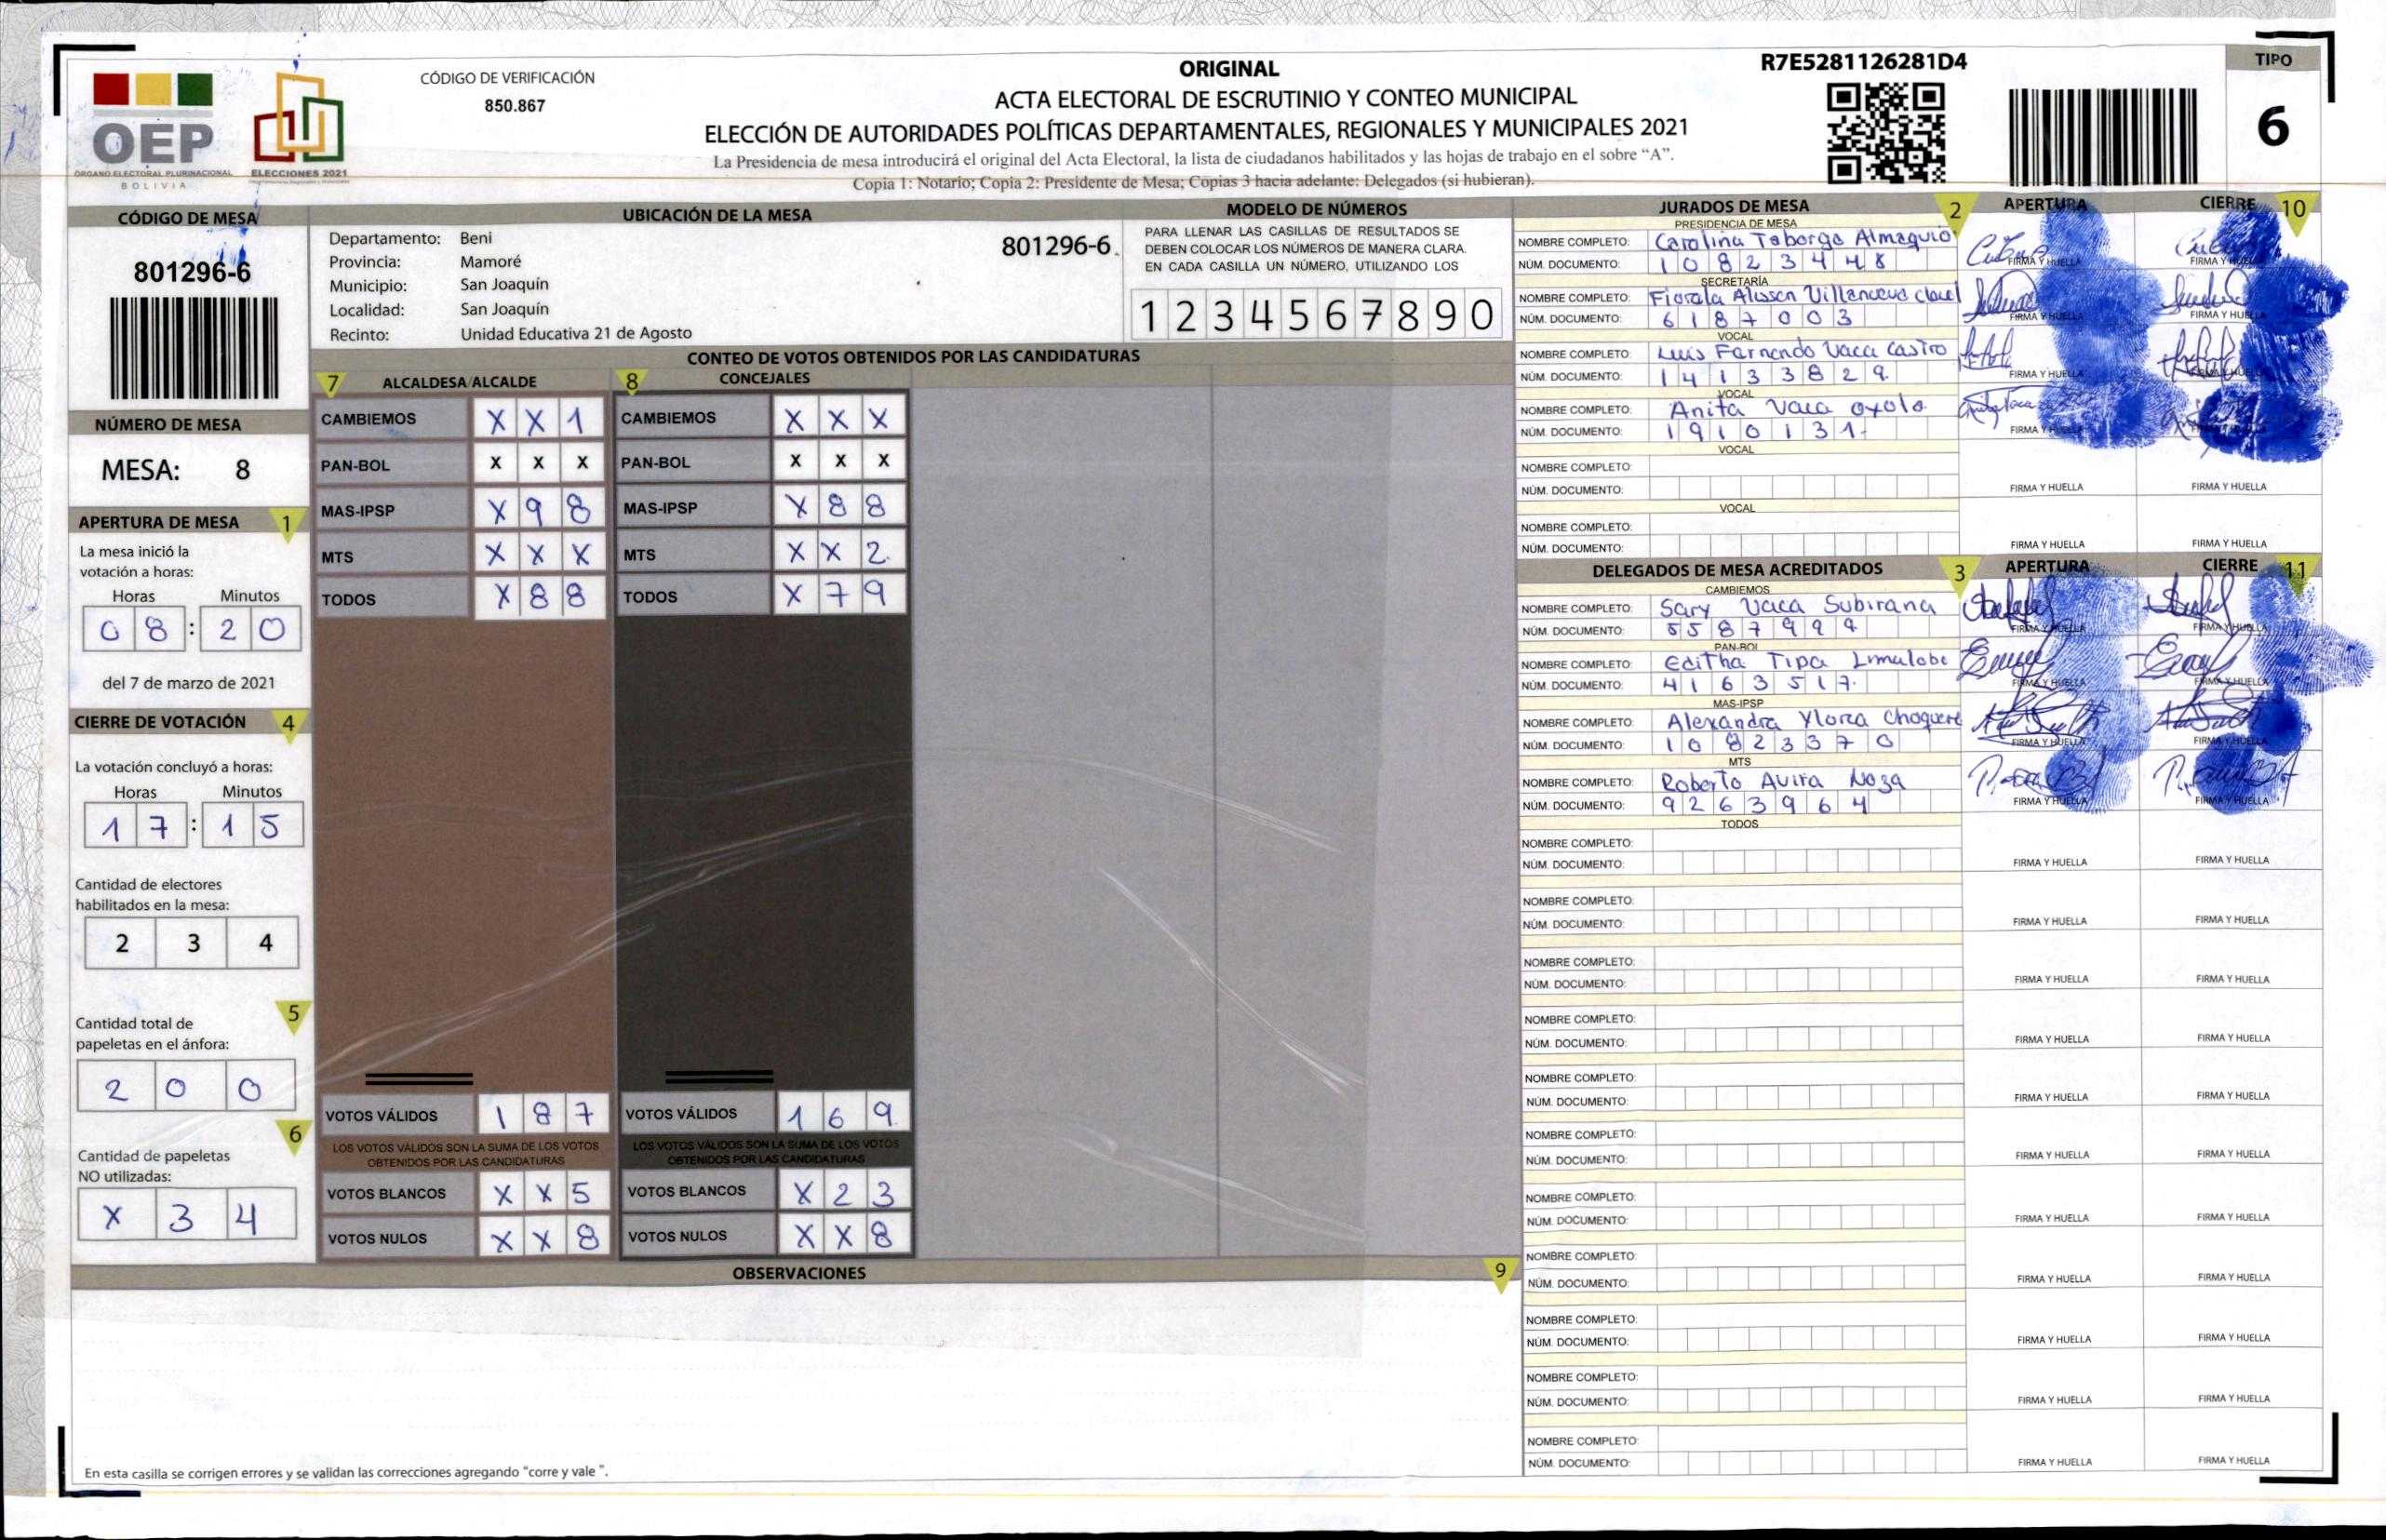 OEP
ÓRGANO ELECTORAL PLURINACIONAL
BOLIVIA
ELECCIONES 2021
CÓDIGO DE VERIFICACIÓN
850.867
ORIGINAL
ACTA ELECTORAL DE ESCRUTINIO Y CONTEO MUNICIPAL
ELECCIÓN DE AUTORIDADES POLÍTICAS DEPARTAMENTALES, REGIONALES Y MUNICIPALES 2021
La Presidencia de mesa introducirá el original del Acta Electoral, la lista de ciudadanos habilitados y las hojas de trabajo en el sobre “A”.
Copia 1: Notario; Copia 2: Presidente de Mesa; Copias 3 hacia adelante: Delegados (si hubieran).
R7E5281126281D4
TIPO
6
CÓDIGO DE MESA
801296-6
NÚMERO DE MESA
MESA: 8
APERTURA DE MESA 1
La mesa inició la
votación a horas:
Horas Minutos
08:20
del 7 de marzo de 2021
CIERRE DE VOTACIÓN 4
La votación concluyó a horas:
Horas Minutos
17:15
Cantidad de electores
habilitados en la mesa:
2 3 4
5
Cantidad total de
papeletas en el ánfora:
2 0 0
6
Cantidad de papeletas
NO utilizadas:
X 3 4
UBICACIÓN DE LA MESA
Departamento: Beni
Provincia: Mamoré
Municipio: San Joaquín
Localidad: San Joaquín
Recinto: Unidad Educativa 21 de Agosto
801296-6
MODELO DE NÚMEROS
PARA LLENAR LAS CASILLAS DE RESULTADOS SE
DEBEN COLOCAR LOS NÚMEROS DE MANERA CLARA.
EN CADA CASILLA UN NÚMERO, UTILIZANDO LOS
1 2 3 4 5 6 7 8 9 0
CONTEO DE VOTOS OBTENIDOS POR LAS CANDIDATURAS
7 ALCALDESA/ALCALDE
CAMBIEMOS X X 1
PAN-BOL X X X
MAS-IPSP X 9 8
MTS X X X
TODOS X 8 8
VOTOS VÁLIDOS 1 8 7
LOS VOTOS VÁLIDOS SON LA SUMA DE LOS VOTOS
OBTENIDOS POR LAS CANDIDATURAS
VOTOS BLANCOS X X 5
VOTOS NULOS X X 8
8 CONCEJALES
CAMBIEMOS X X X
PAN-BOL X X X
MAS-IPSP X 8 8
MTS X X 2
TODOS X 7 9
VOTOS VÁLIDOS 1 6 9
LOS VOTOS VÁLIDOS SON LA SUMA DE LOS VOTOS
OBTENIDOS POR LAS CANDIDATURAS
VOTOS BLANCOS X 2 3
VOTOS NULOS X X 8
OBSERVACIONES 9
En esta casilla se corrigen errores y se validan las correcciones agregando “corre y vale ”.
JURADOS DE MESA 2 APERTURA CIERRE 10
PRESIDENCIA DE MESA
NOMBRE COMPLETO: Carolina Taborga Almaquio
NÚM. DOCUMENTO: 10823448
FIRMA Y HUELLA FIRMA Y HUELLA
SECRETARÍA
NOMBRE COMPLETO: Fiorela Alisson Villanueva
NÚM. DOCUMENTO: 6187003
FIRMA Y HUELLA FIRMA Y HUELLA
VOCAL
NOMBRE COMPLETO: Luis Fernando Vaca Castro
NÚM. DOCUMENTO: 14133829
FIRMA Y HUELLA FIRMA Y HUELLA
VOCAL
NOMBRE COMPLETO: Anita Vaca oyola
NÚM. DOCUMENTO: 1910131
FIRMA Y HUELLA FIRMA Y HUELLA
VOCAL
NOMBRE COMPLETO:
NÚM. DOCUMENTO:
FIRMA Y HUELLA FIRMA Y HUELLA
VOCAL
NOMBRE COMPLETO:
NÚM. DOCUMENTO:
FIRMA Y HUELLA FIRMA Y HUELLA
DELEGADOS DE MESA ACREDITADOS 3 APERTURA CIERRE 11
CAMBIEMOS
NOMBRE COMPLETO: Sary Vaca Subirana
NÚM. DOCUMENTO: 5587999
FIRMA Y HUELLA FIRMA Y HUELLA
PAN-BOL
NOMBRE COMPLETO: Editha Tipa
NÚM. DOCUMENTO: 4163517
FIRMA Y HUELLA FIRMA Y HUELLA
MAS-IPSP
NOMBRE COMPLETO: Alexandra Choquere
NÚM. DOCUMENTO: 10823370
FIRMA Y HUELLA FIRMA Y HUELLA
MTS
NOMBRE COMPLETO: Roberto Avira Noza
NÚM. DOCUMENTO: 9263964
FIRMA Y HUELLA FIRMA Y HUELLA
TODOS
NOMBRE COMPLETO:
NÚM. DOCUMENTO:
FIRMA Y HUELLA FIRMA Y HUELLA
NOMBRE COMPLETO:
NÚM. DOCUMENTO:
FIRMA Y HUELLA FIRMA Y HUELLA
NOMBRE COMPLETO:
NÚM. DOCUMENTO:
FIRMA Y HUELLA FIRMA Y HUELLA
NOMBRE COMPLETO:
NÚM. DOCUMENTO:
FIRMA Y HUELLA FIRMA Y HUELLA
NOMBRE COMPLETO:
NÚM. DOCUMENTO:
FIRMA Y HUELLA FIRMA Y HUELLA
NOMBRE COMPLETO:
NÚM. DOCUMENTO:
FIRMA Y HUELLA FIRMA Y HUELLA
NOMBRE COMPLETO:
NÚM. DOCUMENTO:
FIRMA Y HUELLA FIRMA Y HUELLA
NOMBRE COMPLETO:
NÚM. DOCUMENTO:
FIRMA Y HUELLA FIRMA Y HUELLA
NOMBRE COMPLETO:
NÚM. DOCUMENTO:
FIRMA Y HUELLA FIRMA Y HUELLA
NOMBRE COMPLETO:
NÚM. DOCUMENTO:
FIRMA Y HUELLA FIRMA Y HUELLA
NOMBRE COMPLETO:
NÚM. DOCUMENTO:
FIRMA Y HUELLA FIRMA Y HUELLA